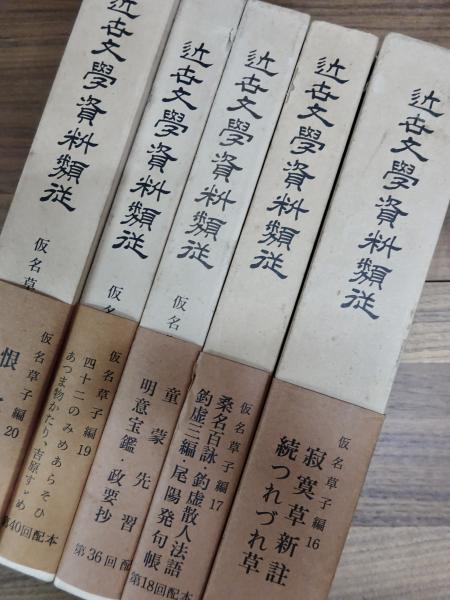 近世文學資料類従
仮名草子編16
寂寞草新註
続つれづれ草
近世文學資料類従
仮名草子編17
桑名百詠・釣虚散人法語
釣虚三編・尾陽発句帳
第18回配本
近世文學資料類従
仮名
童蒙先習
明意宝鑑・政要抄
第36回配
近世文學資料類従
仮名
仮名草子編19
四十二のみめあらそひ
あつま物かたり・吉原すゞめ
第40回配本
近世文學資料類従
仮名草
仮名草子編20
恨